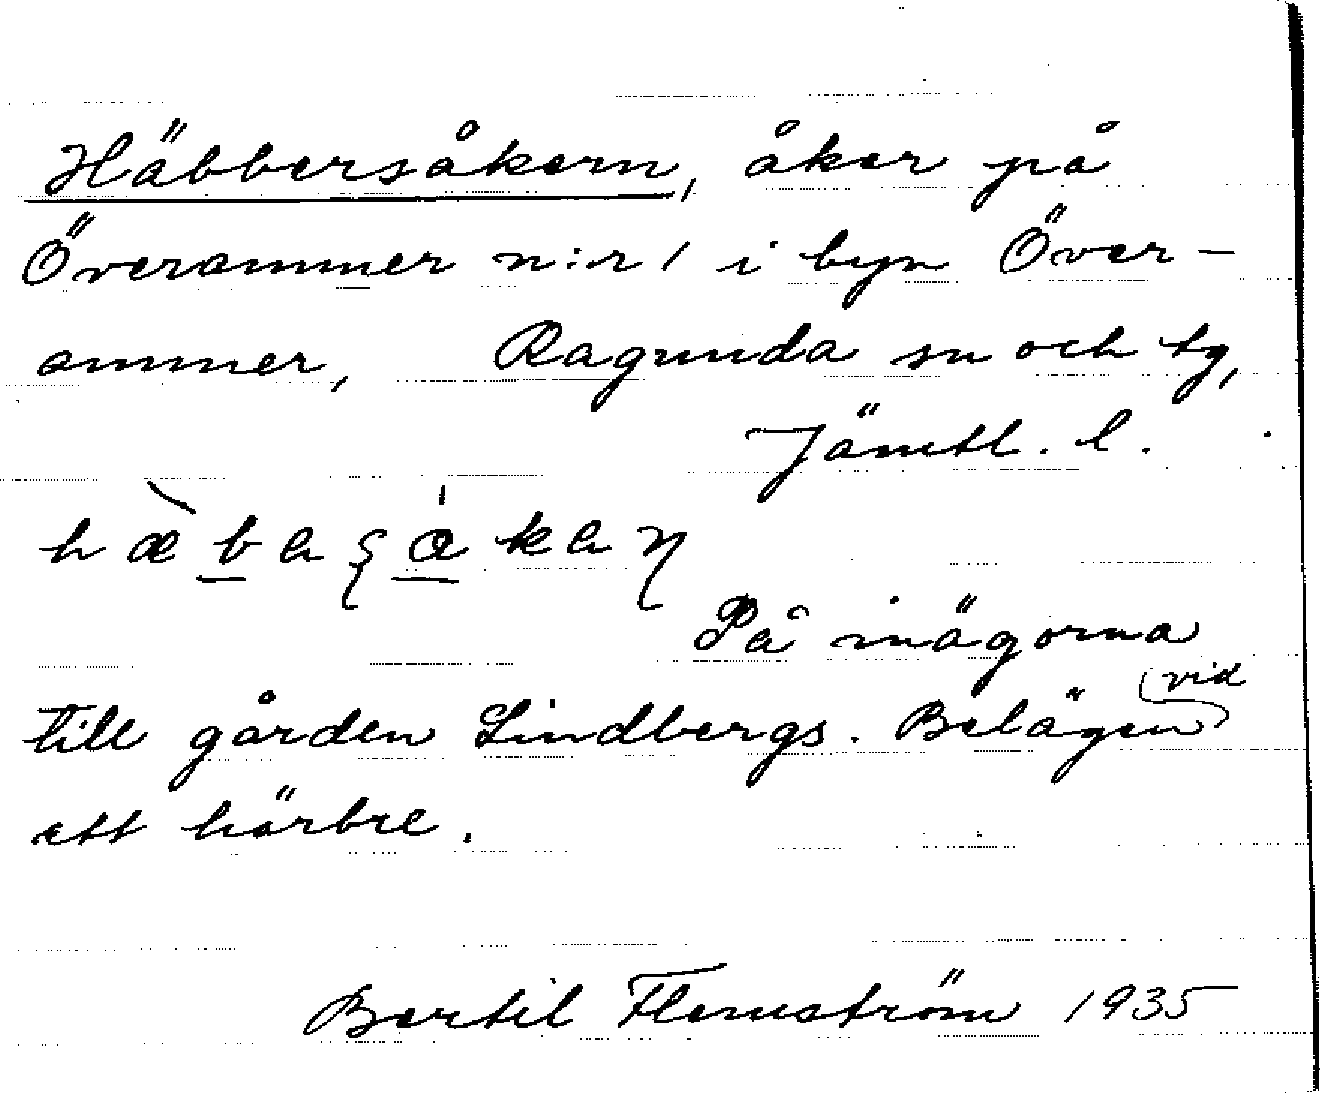 Häbbersåkern, åker på
Överammer n:r 1 i byn Över-
ammer, Ragunda sn och tg,
Jämtl. l.
hæ̀baʂákaɳ
På inägorna
till gården Lindbergs. Belägen vid
ett härbre.
Bertil Flemström 1935